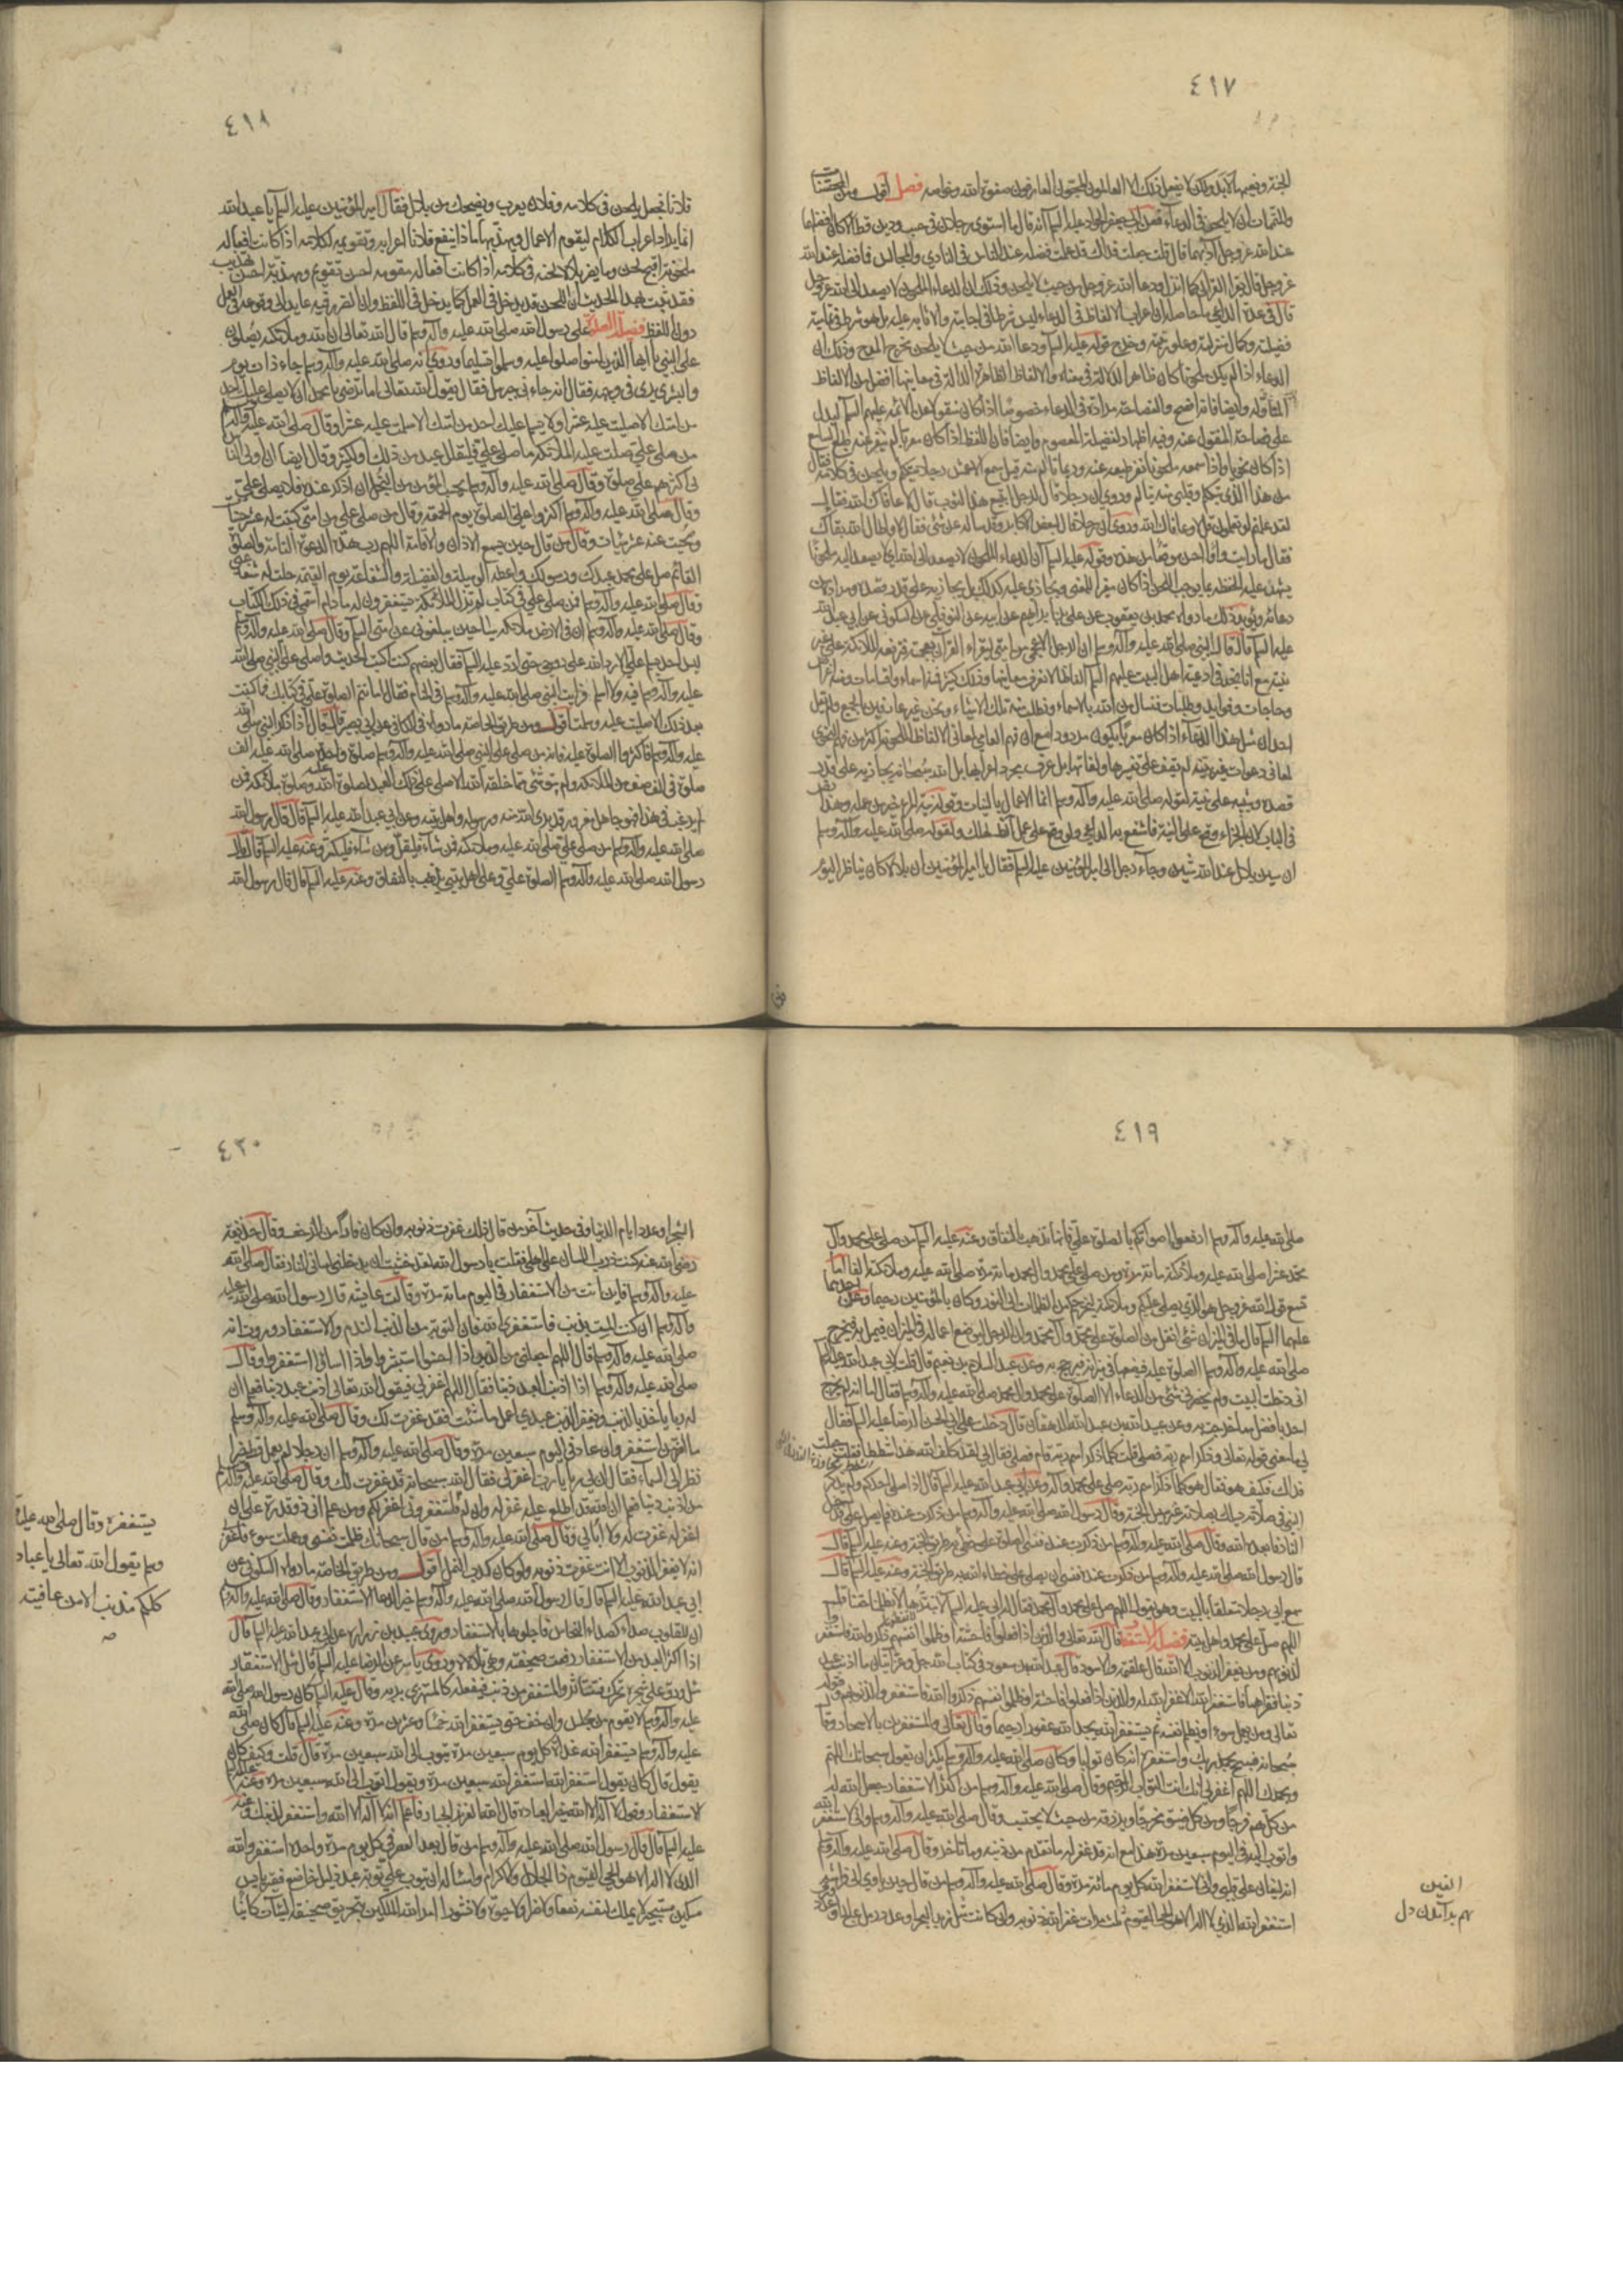 ٤١٧
الجنة ونعيمها الأبد ولكن لا يفعل ذلك الا العالمون المحبتون العارفون صفوة الله وخواصه فصل اقول ومن
والمتممات ان لا يلحن في الدعاء فعن ابي جعفر الجواد عليه السلام انه قال ما استوى رجلان في حسب ودين قط الا كان افضلهما
عند الله عز وجل آدبهما قال قلت جعلت فداك قد علمت فضله عند الناس في النادي والمجالس فما فضله عند الله
عز وجل قال بقراءة القران كما انزل ودعا الله عز وجل من حيث لا يلحن وذلك ان الدعاء الملحون لا يصعد الى الله عز وجل
قال في عدة الداعي ما حاصله ان اعراب الالفاظ في الدعاء ليس شرطا في اجابته والاثابة عليه بل هو شرط في تمامية
فضيلته وكمال منزلته وعلو رتبته وخرج قوله عليه السلام ودعا الله من حيث لا يلحن مخرج المدح وذلك ان
الدعاء اذا لم يكن ملحونا كان ظاهر الدلالة في معناه والالفاظ الظاهرة الدلالة في معانيها افضل من الالفاظ
المتاولة وايضا فانه افصح والفصاحة مرادة في الدعاء خصوصا اذا كان منقولا عن الائمة عليهم السلام ليدل
على فصاحة المنقول عنه وفيه اظهار لفضيلة المعصوم وايضا فان اللفظ اذا كان معربا لم ينفر عنه طبع السامع
اذا كان نحويا واذا سمعه ملحونا نفر طبعه عنه وربما تالم منه قيل سمع الاعمش رجلا يتكلم ويلحن في كلامه فقال
من هذا الذي يتكلم وقلبي منه يتالم وروي ان رجلا قال لرجل اتبيع هذا الثوب قال لا عافاك الله فقال
لقد علمتم لو تعلمون قل لا وعافاك الله وروي ان رجلا قال لبعض الاكابر وقد ساله عن شيء فقال لا واطال الله بقاك
فقال ما رايت واوا احسن موقعا من هذه وقوله عليه السلام ان الدعاء الملحون لا يصعد الى الله اي لا يصعد اليه ملحونا
يشهد عليه الحفظة بما يوجبه اللحن اذا كان مغيرا للمعنى ويجازى عليه كذلك بل يجازيه على قدر قصده ومراده من
دعائه ويؤيد ذلك ما رواه محمد بن يعقوب عن علي بن ابراهيم عن ابيه عن النوفلي عن السكوني عن ابي عبد الله
عليه السلام قال قال النبي صلى الله عليه وآله وسلم ان الرجل الاعجمي من امتي ليقراء القران بعجمته فترفعه الملائكة على عربيته
مع انا نجد في ادعية اهل البيت عليهم السلام الفاظا لا نعرف معانيها وذلك كثير فمنه اسماء واقسامات ومنه اغراض
وحاجات وفوايد وطلبات فنسال من الله بالاسماء ونطلب منه تلك الاشياء ونحن غير عارفين بالجميع ولم يقل
احد ان مثل هذا الدعاء اذا كان معربا يكون مردودا مع ان فهم العامي لمعاني الالفاظ الملحونة اكثر من فهم النحوي
لمعاني دعوات عربية لم يقف على تفسيرها ولغاتها بل عرف مجرد اعرابها بل الله سبحانه يجازيه على قدر
قصده ويثيبه على نيته لقوله صلى الله عليه وآله وسلم انما الاعمال بالنيات وقوله نية المرء خير من عمله وهذا نص
في الباب لان الجزاء وقع على النية فانتفع به الداعي ولو وقع على العمل لهلك ولقوله صلى الله عليه وآله وسلم
ان سين بلال عند الله شين وجاء رجل الى امير المؤمنين عليه السلام فقال يا امير المؤمنين ان بلالا كان يناظر اليوم
٤١٨
فلانا فجعل يلحن في كلامه وفلان يعرب ويضحك من بلال فقال امير المؤمنين عليه السلام يا عبد الله
انما يراد اعراب الكلام ليقوم الاعمال ويهذبها ماذا ينفع فلانا اعرابه وتقويمه لكلامه اذا كانت افعاله
ملحونة اقبح لحن وما يضر بلالا لحنه في كلامه اذا كانت افعاله مقومة احسن تقويم ومهذبة احسن تهذيب
فقد ثبت بهذا الحديث ان اللحن قد يدخل في العمل كما يدخل في اللفظ وان الضرر فيه عايد الى وقوعه في العمل
دون اللفظ فصل الصلوة على رسول الله صلى الله عليه وآله وسلم قال الله تعالى ان الله وملائكته يصلون
على النبي يا ايها الذين امنوا صلوا عليه وسلموا تسليما وروي انه صلى الله عليه وآله وسلم جاء ذات يوم
والبشرى ترى في وجهه فقال انه جاءني جبرئيل فقال يقول الله تعالى اما ترضى يا محمد ان لا يصلي عليك احد
من امتك الا صليت عليه عشرا ولا يسلم عليك احد من امتك الا سلمت عليه عشرا وقال صلى الله عليه وآله وسلم
من صلى علي صلت عليه الملائكة ما صلى علي فليقلل عبد من ذلك او ليكثر وقال ايضا ان اولى الناس
بي اكثرهم علي صلوة وقال صلى الله عليه وآله وسلم بحسب المؤمن من البخل ان اذكر عنده فلا يصلي علي
وقال صلى الله عليه وآله وسلم اكثروا علي الصلوة يوم الجمعة وقال من صلى علي من امتي كتبت له عشر حسنات
ومحيت عنه عشر سيئات وقال من قال حين يسمع الاذان والاقامة اللهم رب هذه الدعوة التامة والصلوة
القائمة صل على محمد عبدك ورسولك واعطه الوسيلة والفضيلة والشفاعة يوم القيمة حلت له شفاعتي
وقال صلى الله عليه وآله وسلم من صلى علي في كتاب لم تزل الملائكة يستغفرون له ما دام اسمي في ذلك الكتاب
وقال صلى الله عليه وآله وسلم ان في الارض ملائكة سياحين يبلغوني عن امتي السلام وقال صلى الله عليه وآله وسلم
ليس احد يسلم علي الا رد الله علي روحي حتى ارد عليه السلام فقال بعضهم كنت اكتب الحديث واصلي على النبي صلى الله
عليه وآله وسلم فيه ولا اسلم فرايت النبي صلى الله عليه وآله وسلم في المنام فقال اما تتم الصلوة علي في كتابك فما كتبت
بعد ذلك الا صليت عليه وسلمت اقول ومن طريق الخاصة ما رواه في الكافي عن ابي بصير قال قال اذا ذكر النبي صلى الله
عليه وآله وسلم فاكثروا الصلوة عليه فانه من صلى على النبي صلى الله عليه وآله وسلم صلوة واحدة صلى الله عليه الف
صلوة في الف صف من الملائكة ولم يبق شئ مما خلقه الله الا صلى على ذلك العبد لصلوة الله عليه وصلوة ملائكته فمن
لم يرغب في هذا فهو جاهل مغرور قد برئ الله منه ورسوله واهل بيته وعن ابي عبد الله عليه السلام قال قال رسول الله
صلى الله عليه وآله وسلم من صلى علي صلى الله عليه وملائكته فمن شاء فليقل ومن شاء فليكثر وعنه عليه السلام قال قال
رسول الله صلى الله عليه وآله وسلم الصلوة علي وعلى اهل بيتي تذهب بالنفاق وعنه عليه السلام قال قال رسول الله
٤١٩
صلى الله عليه وآله وسلم ارفعوا اصواتكم بالصلوة علي فانها تذهب بالنفاق وعنه عليه السلام من صلى على محمد وآل
محمد عشرا صلى الله عليه وملائكته مائة مرة ومن صلى على محمد وال محمد مائة مرة صلى الله عليه وملائكته الفا اما
تسمع قول الله عز وجل هو الذي يصلي عليكم وملائكته ليخرجكم من الظلمات الى النور وكان بالمؤمنين رحيما وعن احدهما
عليهما السلام قال ما في الميزان شئ اثقل من الصلوة على محمد وآل محمد وان الرجل ليوضع اعماله في الميزان فيميل به فيخرج
صلى الله عليه وآله وسلم الصلوة عليه فيضعها في ميزانه فيرجح به وعن عبد السلام بن نعيم قال قلت لابي عبد الله عليه السلام
اني دخلت البيت ولم يحضرني شئ من الدعاء الا الصلوة على محمد وال محمد صلى الله عليه وآله وسلم فقال اما انه لم يخرج
احد بافضل مما خرجت به وعن عبيد الله بن عبد الله الدهقان قال دخلت على ابي الحسن الرضا عليه السلام فقال
لي ما معنى قوله تعالى وذكر اسم ربه فصلى قلت كلما ذكر اسم ربه قام فصلى فقال لي لقد كلف الله هذا شططا فقلت جعلت
فداك فكيف هو فقال هو كلما ذكر اسم ربه صلى على محمد وآله وعن ابي عبد الله عليه السلام قال اذا صلى احدكم ولم يذكر
النبي في صلاته يسلك بصلاته غير سبيل الجنة وقال رسول الله صلى الله عليه وآله وسلم من ذكرت عنده فلم يصل علي دخل
النار فابعده الله وقال صلى الله عليه وآله وسلم من ذكرت عنده فنسي الصلوة علي خطئ به طريق الجنة وعنه عليه السلام قال
قال رسول الله صلى الله عليه وآله وسلم من ذكرت عنده فنسي ان يصلي علي خطاء الله به طريق الجنة وعنه عليه السلام قال
سمع ابي رجلا متعلقا بالبيت وهو يقول اللهم صل على محمد وآل محمد فقال له ابي عليه السلام لا تبترها لا تظلمنا حقنا قل
اللهم صل على محمد واهل بيته فصل الاستغفار قال الله تعالى والذين اذا فعلوا فاحشة او ظلموا انفسهم ذكروا الله فاستغفروا
لذنوبهم ومن يغفر الذنوب الا الله قال علقمة والاسود قال عبد الله بن مسعود في كتاب الله عز وجل آيتان ما اذنب عبد
ذنبا فقراهما فاستغفر الله الا غفر الله له والذين اذا فعلوا فاحشة او ظلموا انفسهم ذكروا الله فاستغفروا لذنوبهم وقوله
تعالى ومن يعمل سوءا او يظلم نفسه ثم يستغفر الله يجد الله غفورا رحيما وقال تعالى والمستغفرين بالاسحار وقال
سبحانه فسبح بحمد ربك واستغفره انه كان توابا وكان صلى الله عليه وآله وسلم يكثر ان يقول سبحانك اللهم
وبحمدك اللهم اغفر لي انك انت التواب الرحيم وقال صلى الله عليه وآله وسلم من اكثر الاستغفار جعل الله له
من كل هم فرجا ومن كل ضيق مخرجا ويرزقه من حيث لا يحتسب وقال صلى الله عليه وآله وسلم اني لاستغفر الله
واتوب اليه في اليوم سبعين مرة هذا مع انه قد غفر له ما تقدم من ذنبه وما تاخر وقال صلى الله عليه وآله وسلم
انه ليغان على قلبي واني لاستغفر الله كل يوم مائة مرة وقال صلى الله عليه وآله وسلم من قال حين ياوي الى فراشه
استغفر الله الذي لا اله الا هو الحي القيوم ثلث مرات غفر الله ذنوبه وان كانت مثل زبد البحر او عدد رمل عالج
الغين
٤٢٠
الشجر او عدد ايام الدنيا وفي حديث آخر من قال ذلك غفرت ذنوبه وان كان فارا من الزحف وقال حذيفة
رضي الله عنه كنت ذرب اللسان على اهلي فقلت يا رسول الله لقد خشيت ان يدخلني لساني النار فقال صلى الله
عليه وآله وسلم فاين انت من الاستغفار فاني في اليوم مائة مرة وقالت عايشة قال رسول الله صلى الله عليه
وآله وسلم ان كنت الممت بذنب فاستغفري الله فان التوبة من الذنب الندم والاستغفار وروت انه
صلى الله عليه وآله وسلم قال اللهم اجعلني من الذين اذا احسنوا استبشروا واذا اساؤا استغفروا وقال
صلى الله عليه وآله وسلم اذا اذنب العبد ذنبا فقال اللهم اغفر لي فيقول الله تعالى اذنب عبدي ذنبا فعلم ان
له ربا ياخذ بالذنب ويغفر الذنب عبدي اعمل ما شئت فقد غفرت لك وقال صلى الله عليه وآله وسلم
ما اصر من استغفر وان عاد في اليوم سبعين مرة وقال صلى الله عليه وآله وسلم ان رجلا لم يعمل قط خيرا
نظر الى السماء فقال ان لي ربا يا رب اغفر لي فقال الله سبحانه قد غفرت لك وقال صلى الله عليه وآله وسلم
من اذنب ذنبا فعلم ان الله قد اطلع عليه غفر له وان لم يستغفر
اغفر له غفرت له ولا ابالي وقال صلى الله عليه وآله وسلم من قال سبحانك ظلمت نفسي وعملت سوءا فاغفر لي
انه لا يغفر الذنوب الا انت غفرت ذنوبه ولو كان كمدب النمل اقول ومن طريق الخاصة ما رواه السكوني عن
ابي عبد الله عليه السلام قال قال رسول الله صلى الله عليه وآله وسلم خير الدعاء الاستغفار وقال صلى الله عليه وآله وسلم
ان للقلوب صداء كصداء النحاس فاجلوها بالاستغفار وروى عبيد بن زرارة عن ابي عبد الله عليه السلام قال
اذا اكثر العبد من الاستغفار رفعت صحيفته وهي تتلالا وروى ياسر عن الرضا عليه السلام قال مثل الاستغفار
مثل ورق على شجرة تحرك فتتناثر والمستغفر من ذنب فيفعله كالمستهزئ بربه وقال عليه السلام كان رسول الله صلى الله
عليه وآله وسلم لا يقوم من مجلس وان خف حتى يستغفر الله خمسا وعشرين مرة وعنه عليه السلام قال كان صلى الله
عليه وآله وسلم يستغفر الله غداة كل يوم سبعين مرة ويتوب الى الله سبعين مرة قال قلت وكيف كان
يقول قال كان يقول استغفر الله استغفر الله سبعين مرة ويقول اتوب الى الله سبعين مرة وعنه
الاستغفار وقول لا اله الا الله خير العبادة قال الله العزيز الجبار فاعلم انه لا اله الا الله واستغفر لذنبك وعنه
عليه السلام قال قال رسول الله صلى الله عليه وآله وسلم من قال بعد العصر في كل يوم مرة واحدة استغفر الله
الذي لا اله الا هو الحي القيوم ذا الجلال والاكرام واسئله ان يتوب علي توبة عبد ذليل خاضع فقير بائس
مسكين مستجير لا يملك لنفسه نفعا ولا ضرا ولا حيوة ولا نشورا امر الله الملكين بتخريق صحيفة السيئات كائنا
يستغفره وقال صلى الله عليه
وسلم يقول الله تعالى يا عباد
كلكم مذنب الا من عافيته